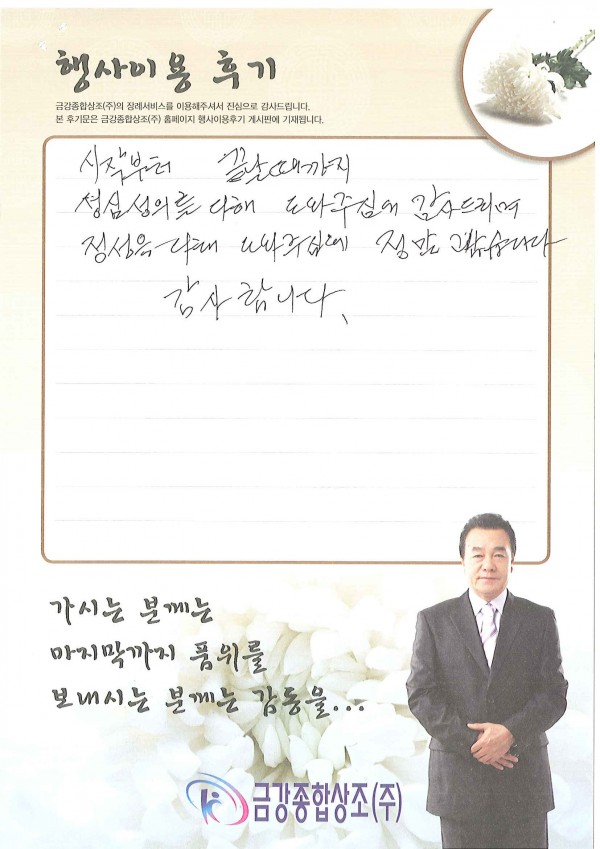 행사이용 후기
금강종합상조(주)의 장례서비스를 이용해주셔서 진심으로 감사드립니다.
본 후기문은 금강종합상조(주) 홈페이지 행사이용후기 게시판에 기재됩니다.
시작부터 끝날때까지
성심성의를 다해 도와주심에 감사드리며
정성을 다해 도와주심에 정말
감사합니다.
가시는 분께는
마지막까지 품위를
보내시는 분께는 감동을...
금강종합상조(주)